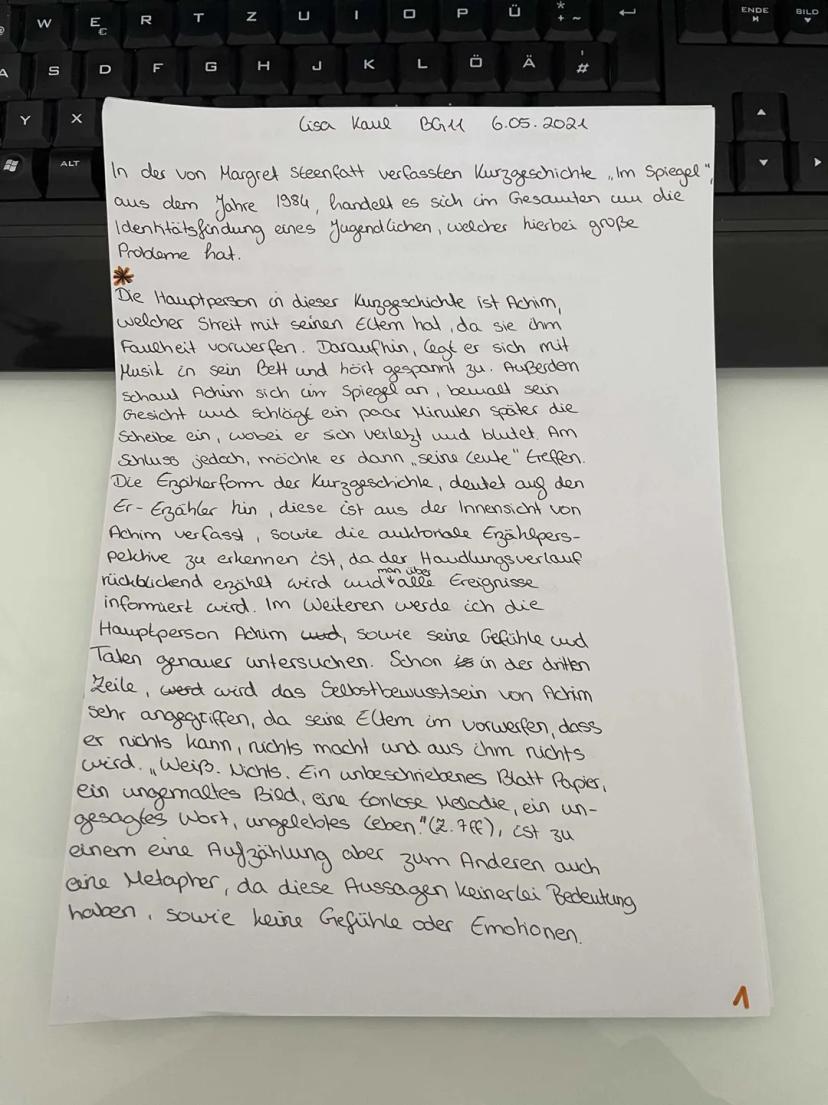 W E R T Z U I O P Ü * + ~ ENDE BILD
€
A S D F G H J K L Ö Ä ' #
Y X
ALT
Lisa Kaul BG11 6.05.2021
In der von Margret Steenfatt verfassten Kurzgeschichte „Im Spiegel",
aus dem Jahre 1984, handelt es sich im Gesamten um die
Identitätsfindung eines Jugendlichen, welcher hierbei große
Probleme hat.
*
Die Hauptperson in dieser Kurzgeschichte ist Achim,
welcher Streit mit seinen Eltern hat, da sie ihm
Faulheit vorwerfen. Daraufhin, legt er sich mit
Musik in sein Bett und hört gespannt zu. Außerdem
schaut Achim sich im Spiegel an, bemalt sein
Gesicht und schlägt ein paar Minuten später die
Scheibe ein, wobei er sich verletzt und blutet. Am
Schluss jedoch, möchte er dann „seine Leute" treffen.
Die Erzählerform der Kurzgeschichte, deutet auf den
Er-Erzähler hin, diese ist aus der Innensicht von
Achim verfasst, sowie die auktoriale Erzählpers-
pektive zu erkennen ist, da der Handlungsverlauf
rückblickend erzählt wird und man über alle Ereignisse
informiert wird. Im Weiteren werde ich die
Hauptperson Achim und, sowie seine Gefühle und
Taten genauer untersuchen. Schon is in der dritten
Zeile, werd wird das Selbstbewusstsein von Achim
sehr angegriffen, da seine Eltern im vorwerfen, dass
er nichts kann, nichts macht und aus ihm nichts
wird. „Weiß. Nichts. Ein unbeschriebenes Blatt Papier,
ein ungemaltes Bild, eine tonlose Melodie, ein un-
gesagtes Wort, ungelebtes Leben." (Z. 7ff), ist zu
einem eine Aufzählung aber zum Anderen auch
eine Metapher, da diese Aussagen keinerlei Bedeutung
haben, sowie keine Gefühle oder Emotionen.
1